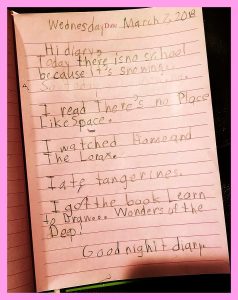 Wednesday March 7, 2018
Hi diary,
Today there is no school
because It's snowing.
I read There's no Place
Like Space.
I watched Home and
The Lorax.
I ate tangerines.
I got the book Learn
to Draw... Wonders of the
Deep!
Good nighit diary.